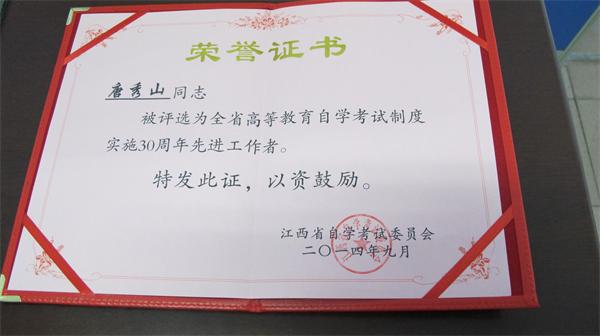 荣誉证书
唐秀山 同志
被评选为全省高等教育自学考试制度
实施30周年先进工作者。
特发此证，以资鼓励。
江西省自学考试委员会
二〇一四年九月